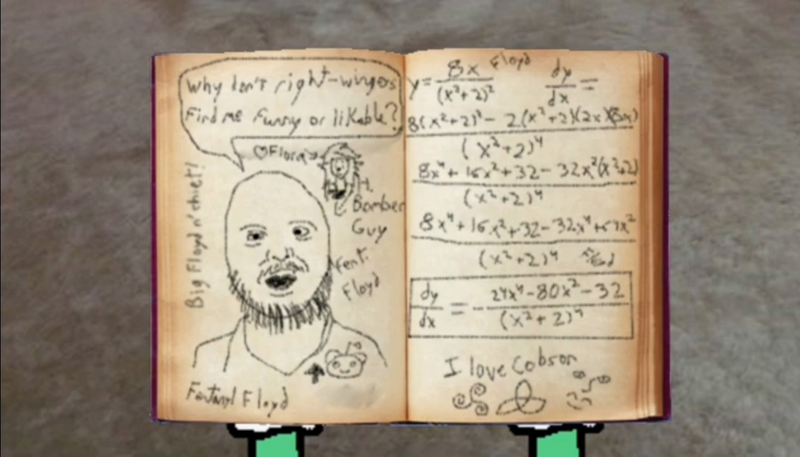 Why don't right-wingers
find me funny or likable?
♡Flora
Bomber
Guy
Fent.
Floyd
Big Floyd n' chief!
Fentanyl Floyd
Floyd
y = 8x / (x²+2)² dy/dx =
8(x²+2)² - 2(x²+2)(2x)(8x)
(x²+2)⁴
8x⁴+16x²+32-32x²(x²+2)
(x²+2)⁴
8x⁴+16x²+32-32x⁴+64x²
(x²+2)⁴
dy/dx = - 24x⁴-80x²-32 / (x²+2)⁴
I love Cobson